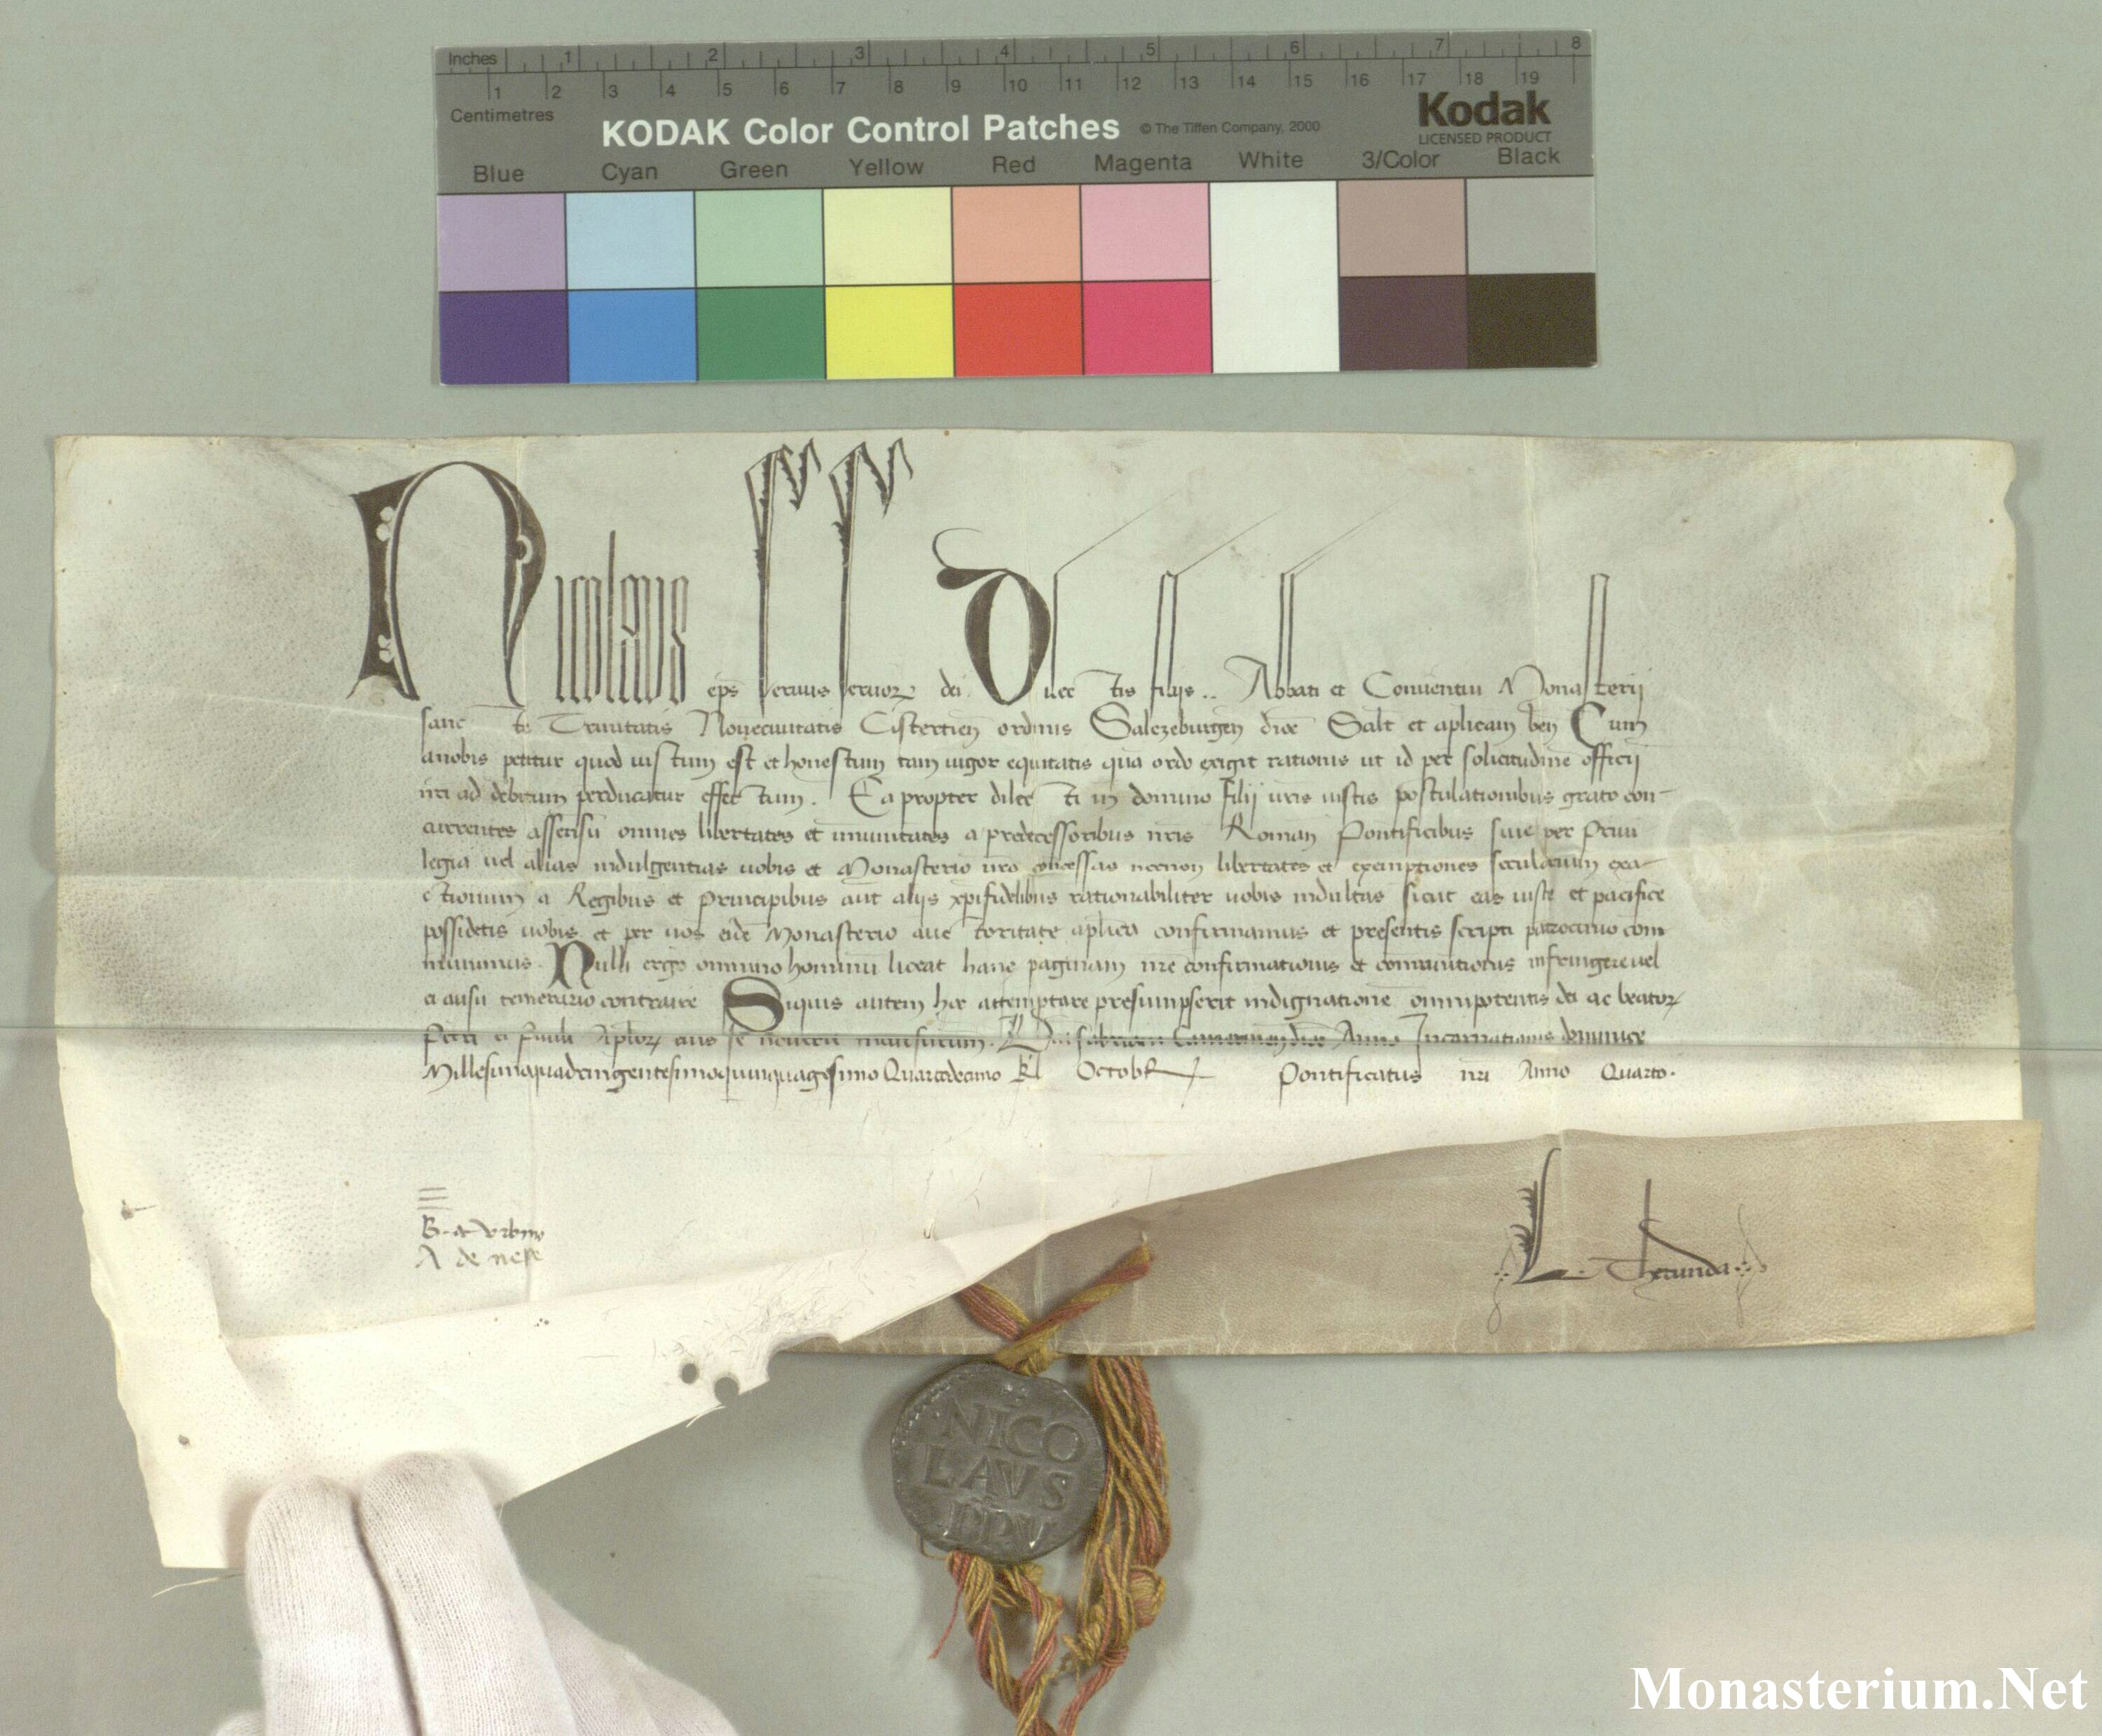 Inches 1 2 3 4 5 6 7 8
1 2 3 4 5 6 7 8 9 10 11 12 13 14 15 16 17 18 19
Centimetres
KODAK Color Control Patches © The Tiffen Company, 2000 Kodak
LICENSED PRODUCT
Blue Cyan Green Yellow Red Magenta White 3/Color Black
Nicolaus eps seruus seruor dei Dilectis filijs .. Abbati et Conuentui Monasterij
sancte Trinitatis Nouecivitatis Cistercien ordinis Salczeburgen dioc Salt et aplicam ben Cum
anobis petitur quod iustum est et honestum tam uigor equitatis qua ordo exigit rationis ut id per solicitudine officij
nri ad debitum perducatur effectum. Eapropter dilecti in domino filij uris iustis postulationibus grato con-
currentes assensu omnes libertates et imunitates a predecessoribus nris Roman Pontificibus siue per Priui
legia uel alias indulgentias uobis et Monasterio uro concessas necnon libertates et exemptiones secularium exa-
ctionum a Regibus et Principibus aut alijs xpifidelibus rationabiliter uobis indultas sicut eas iuste et pacifice
possidetis uobis et per uos eide Monasterio auctoritate aplica confirmamus et presentis scripti patrocinio com
munimus. Nulli ergo omnino hominu liceat hanc paginam nre confirmationis et comunitionis infringere uel
ei ausu temerario contraire Siquis autem hoc attemptare presumpserit indignatione omnipotentis dei ac beator
Petri et Pauli Aplor eius se nouerit incursurum. Dat Anno Incarnationis dominice
Millesimoquadringentesimoquinquagesimo Quartodecimo kl Octobr Pontificatus nri Anno Quarto.
B. de Urbino
A de nepe
L. Therunda
NICO
LAVS
PP V
Monasterium.Net